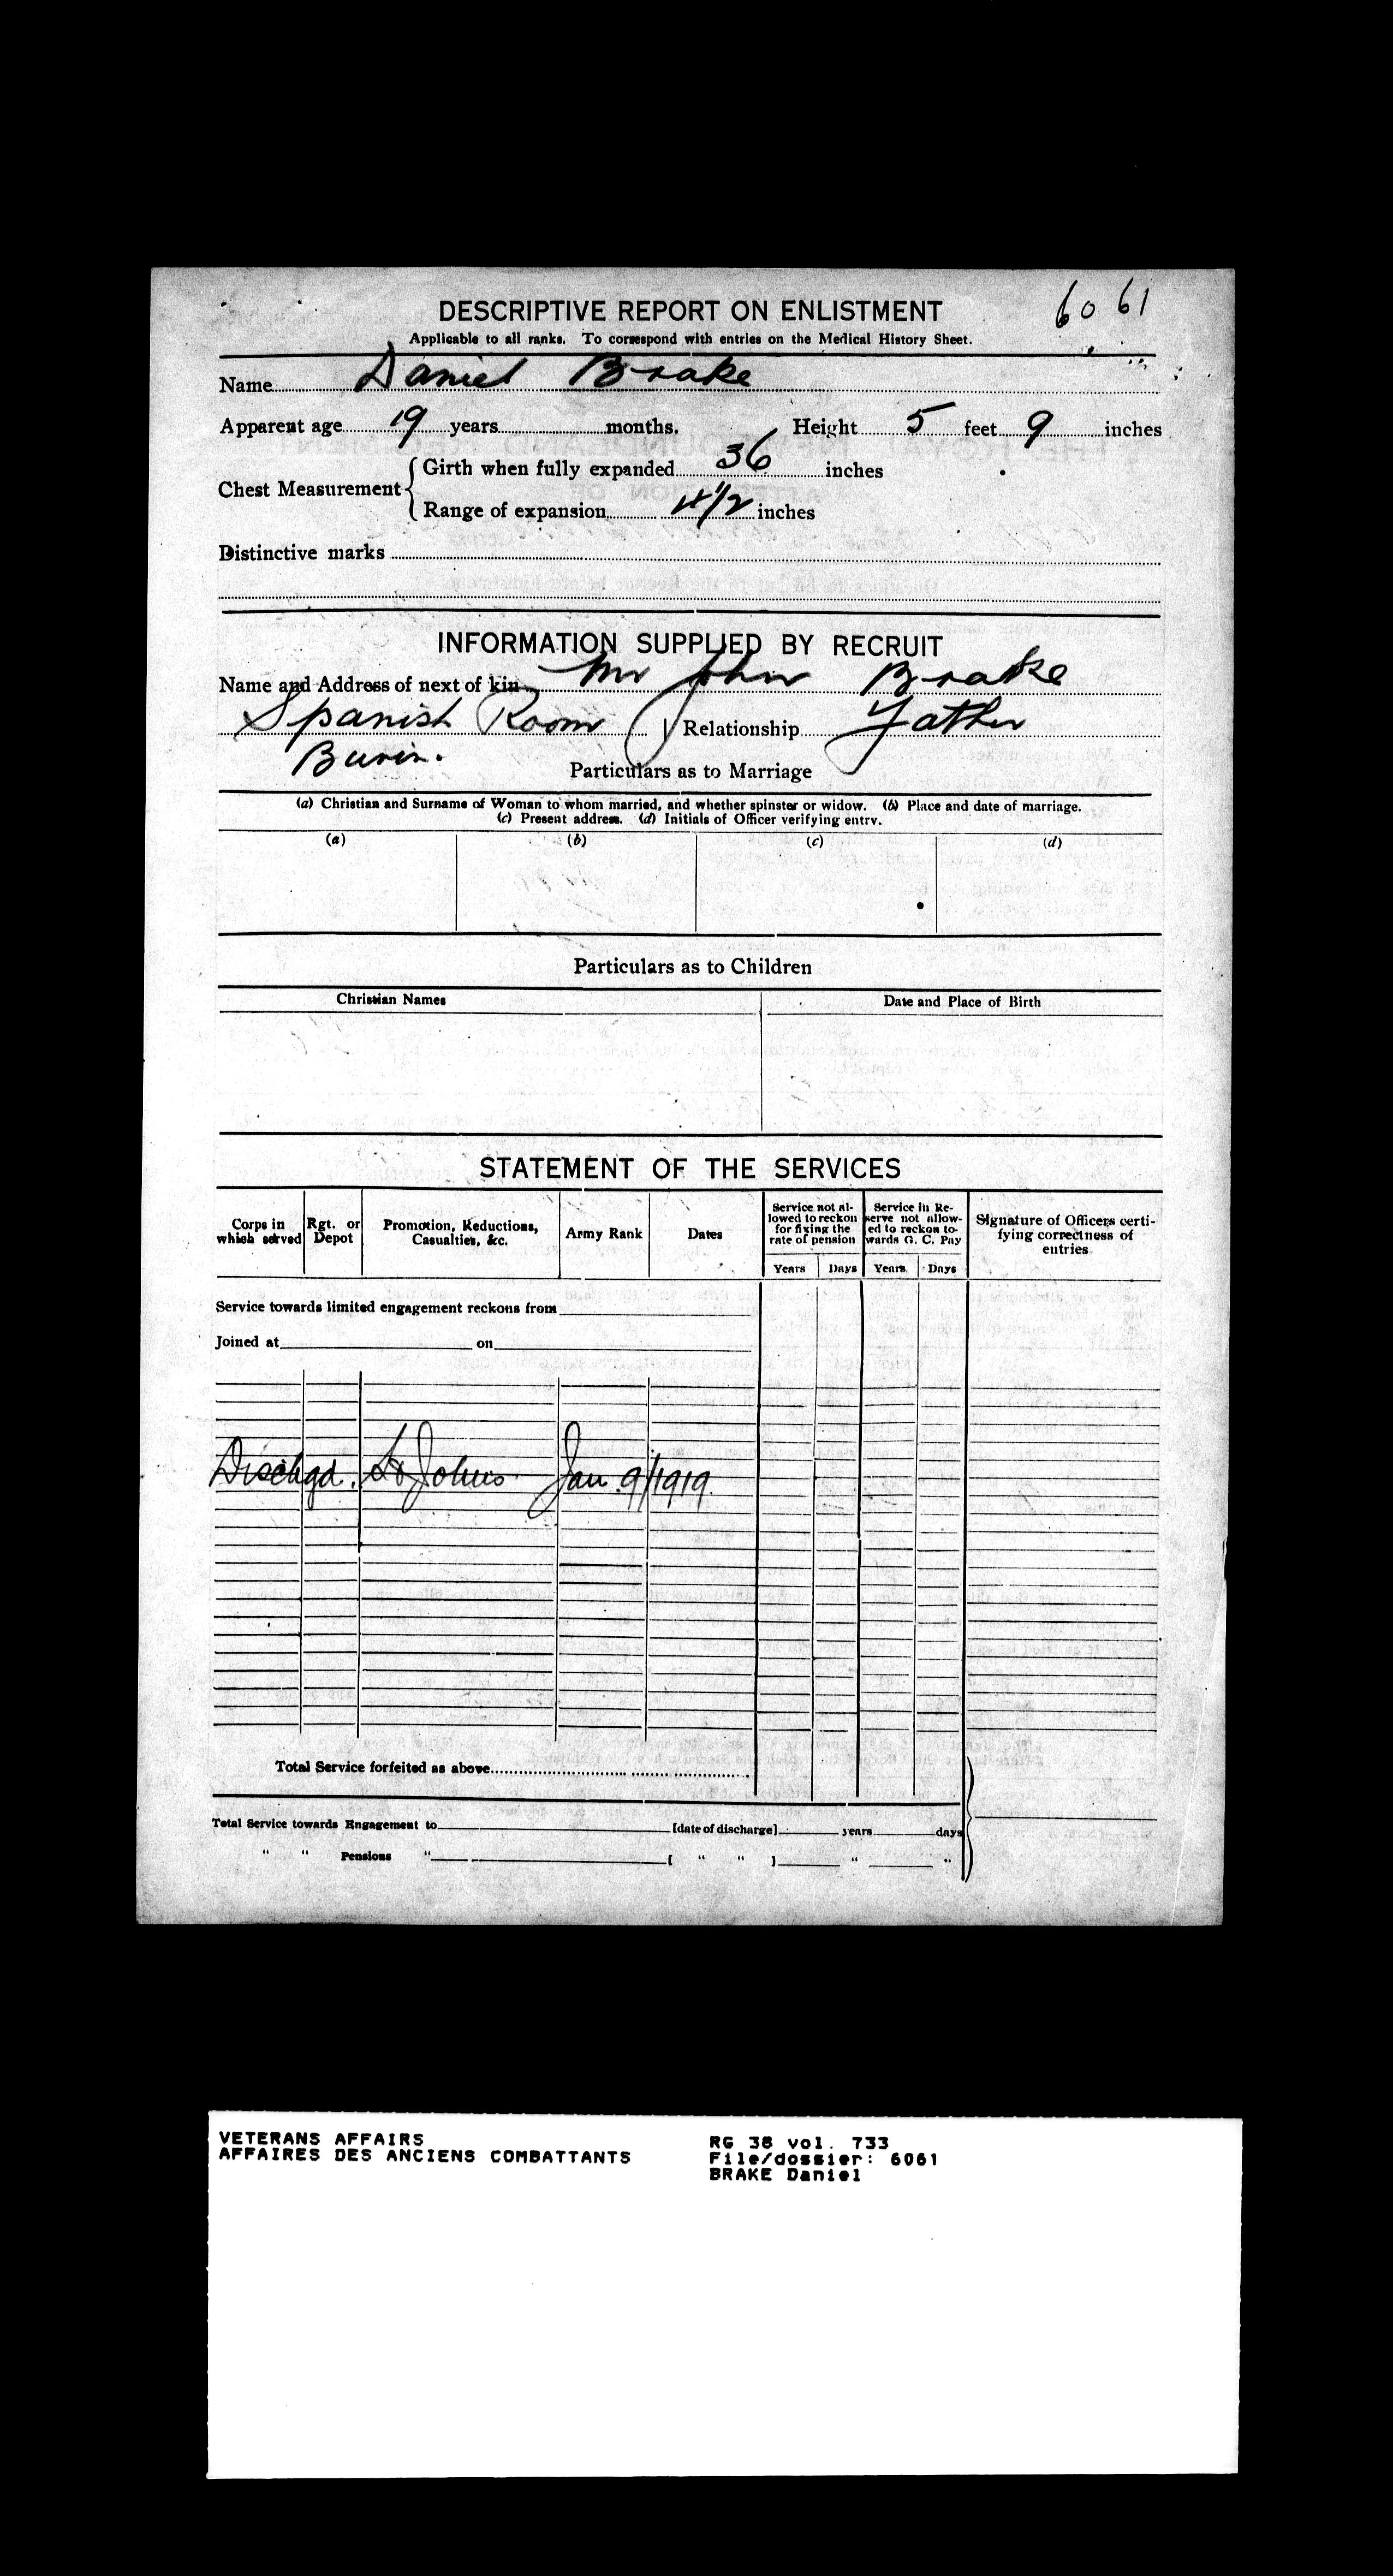 DESCRIPTIVE REPORT ON ENLISTMENT 6061
Applicable to all ranks. To correspond with entries on the Medical History Sheet.
Name Daniel Brake
Apparent age 19 years months. Height 5 feet 9 inches
Chest Measurement { Girth when fully expanded 36 inches
Range of expansion 4 1/2 inches
Distinctive marks
INFORMATION SUPPLIED BY RECRUIT
Name and Address of next of kin Mr John Brake
Spanish Room Relationship Father
Burin.
Particulars as to Marriage
(a) Christian and Surname of Woman to whom married, and whether spinster or widow. (b) Place and date of marriage.
(c) Present address. (d) Initials of Officer verifying entry.
(a) (b) (c) (d)
Particulars as to Children
Christian Names Date and Place of Birth
STATEMENT OF THE SERVICES
Corps in which served Rgt. or Depot Promotion, Reductions, Casualties, &c. Army Rank Dates Service not allowed to reckon for fixing the rate of pension Service in Reserve not allowed to reckon towards G. C. Pay Signature of Officers certifying correctness of entries
Years Days Years Days
Service towards limited engagement reckons from
Joined at on
Dischgd. St Johns Jan 9/1919.
Total Service forfeited as above
Total Service towards Engagement to [date of discharge] years days
" " Pensions " [ " " ] " "
VETERANS AFFAIRS RG 38 vol. 733
AFFAIRES DES ANCIENS COMBATTANTS File/dossier: 6061
BRAKE Daniel